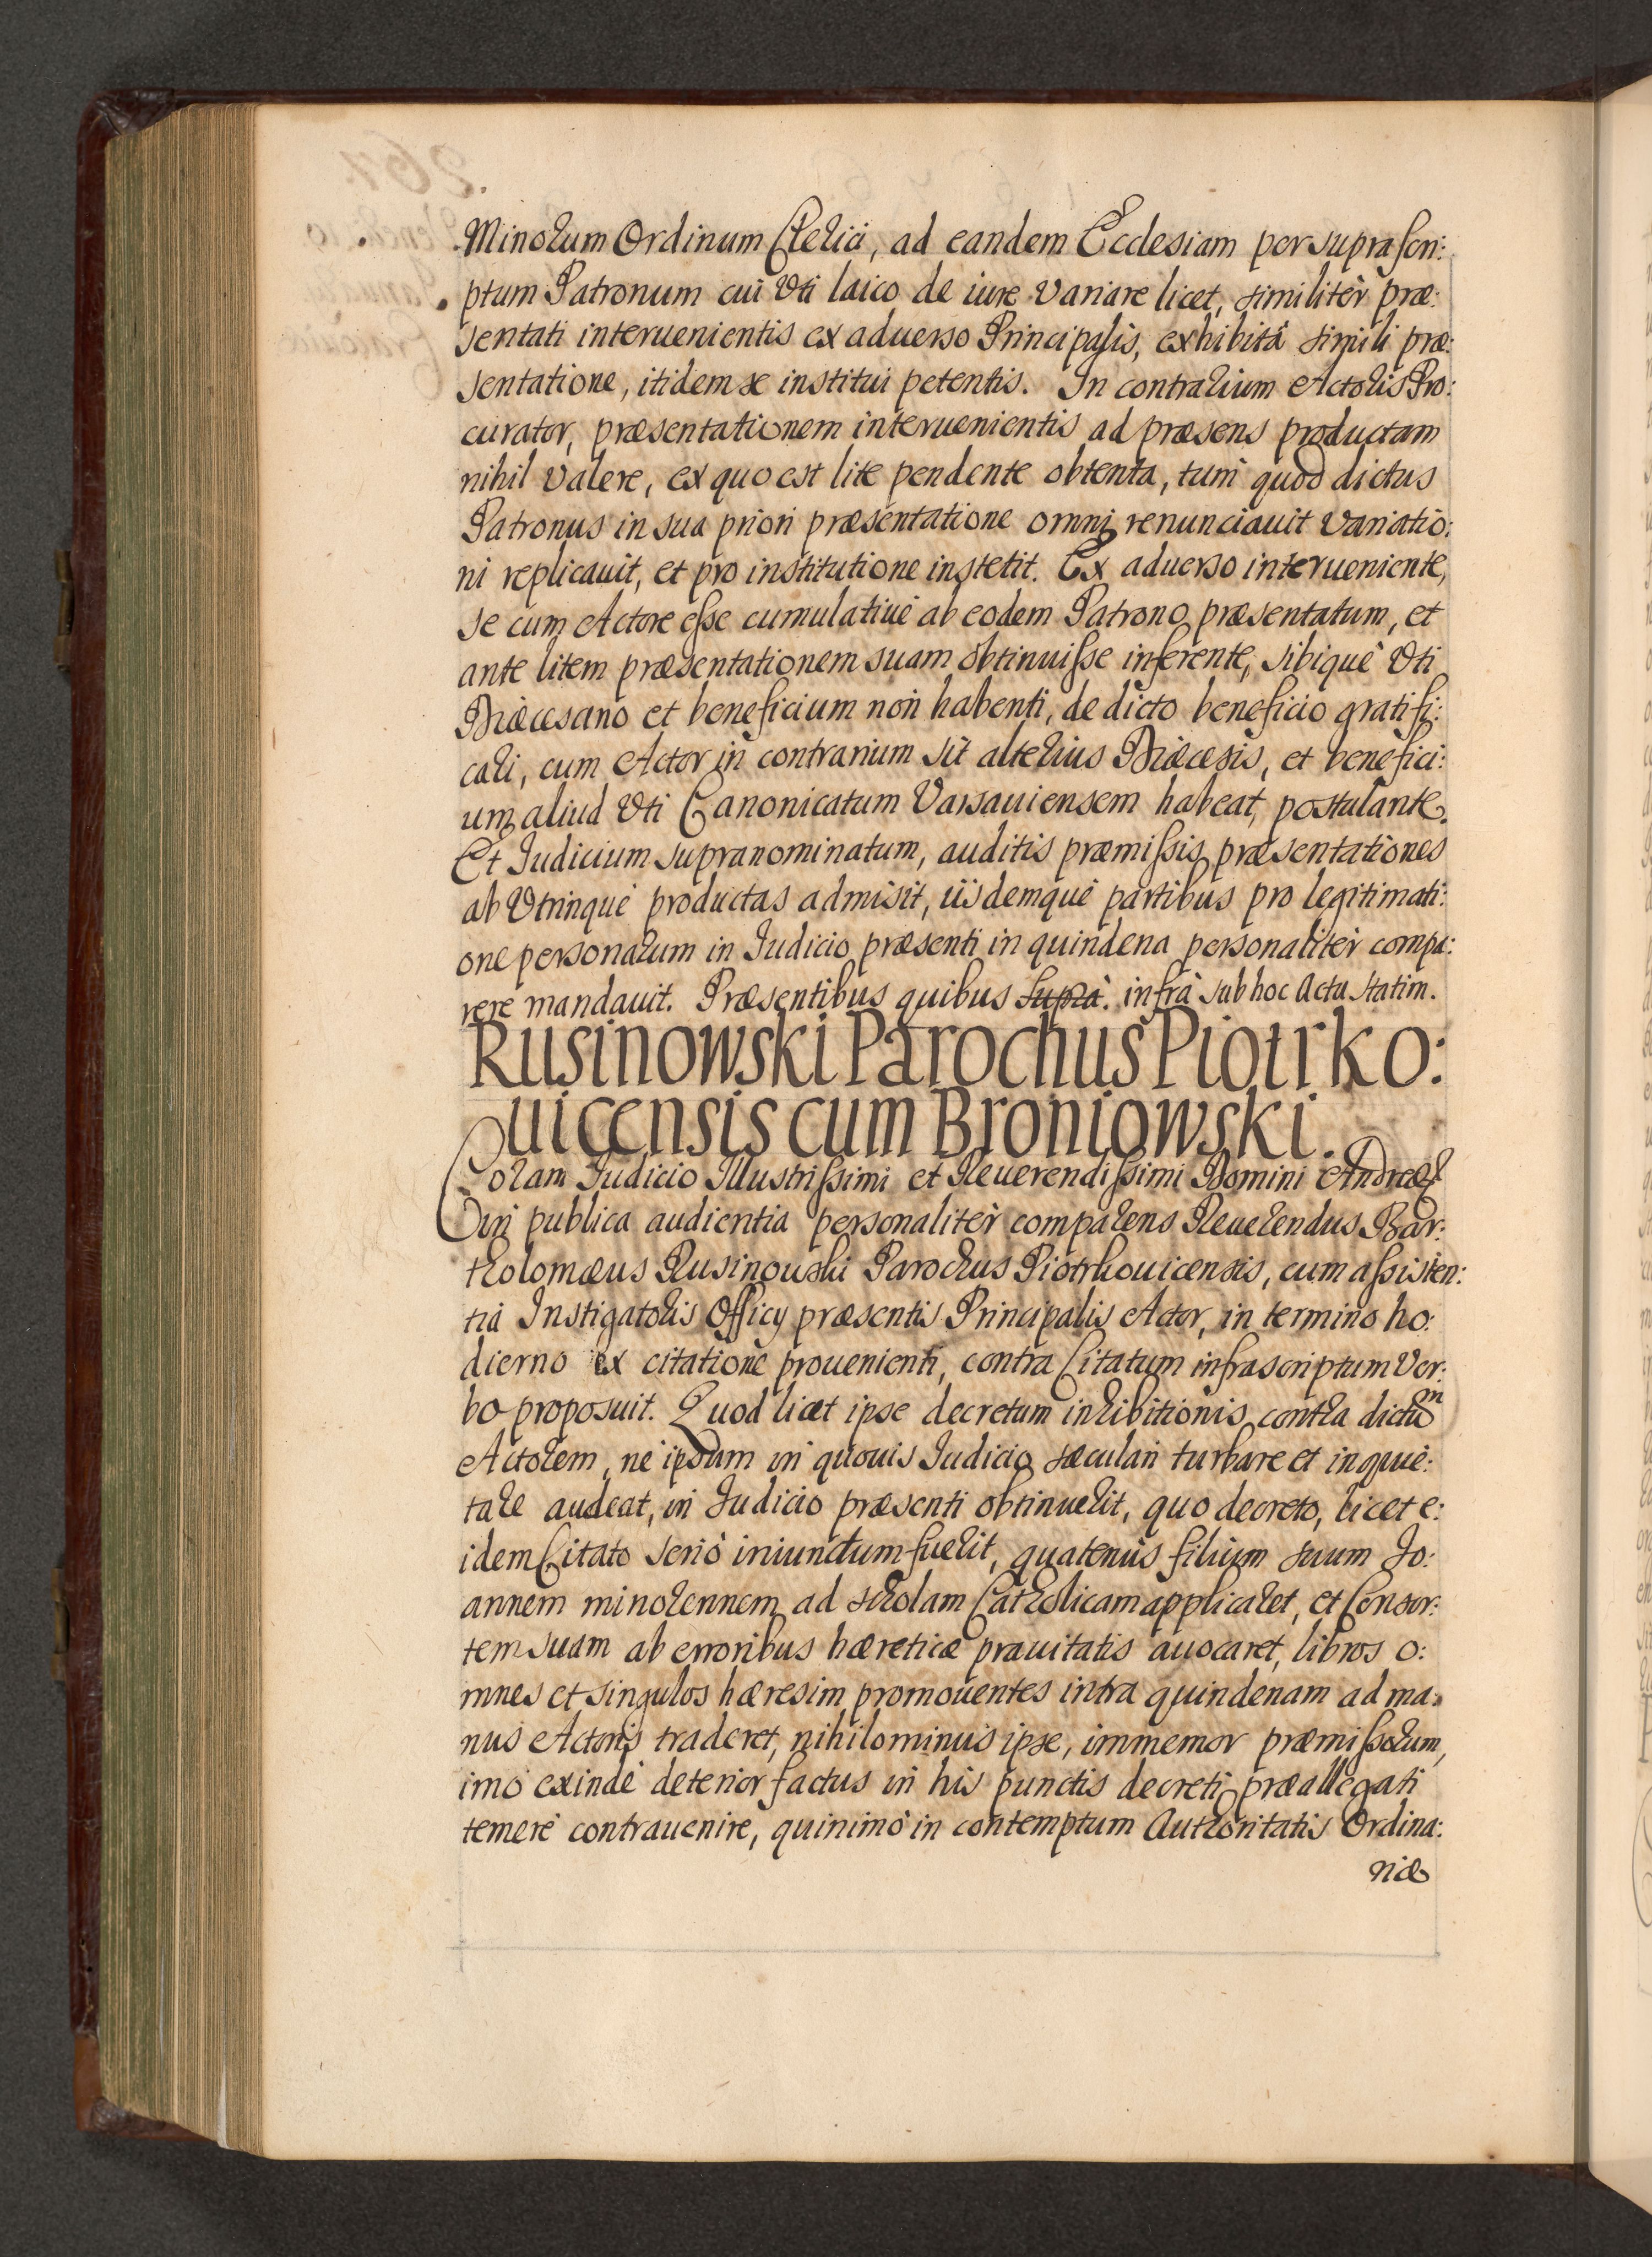 Minorum Ordinum Clerici, ad eandem Ecclesiam per suprascri:
ptum Patronum cui Vti laico de iure Variare licet, similitèr præ:
sentati interuenientis ex aduerso Principalis, exhibitâ simili præ:
sentatione, itidem se institui petentis. In contrarium Actoris Pro:
curator, præsentationem interuenientis ad præsens productam
nihil Valere, ex quo est lite pendente obtenta, tum quod dictus
Patronus in sua priori præsentatione omni renunciauit Variatio:
ni replicauit, et pro institutione institit. Ex aduerso interueniente,
se cum Actore esse cumulatiuè ab eodem Patrono præsentatum, et
ante litem præsentationem suam obtinuisse inferente, sibiquè Vti
Diæcesano et beneficium non habenti, de dicto beneficio gratifi:
cari, cum Actor in contrarium sit alterius Diæcesis, et benefici:
um aliud Vti Canonicatum Varsauiensem habeat, postulante.
Et Judicium supranominatum, auditis præmissis præsentationes
ab Vtrinquè productas admisit, iisdemquè partibus pro legitimati:
one personarum in Judicio præsenti in quindena personalitèr compa:
rere mandauit. Præsentibus quibus supra. infrà sub hoc Actu statim.
Rusinowski Parochus Piotrko:
uicensis cum Broniowski.
Coram Judicio Illustrissimi et Reuerendissimi Domini Andreæ
in publica audientia personalitèr comparens Reuerendus Bar:
tholomæus Rusinowski Parochus Piotrkouicensis, cum assisten:
tia Instigatoris Officy præsentis Principalis Actor, in termino ho:
dierno ex citatione prouenienti, contra Citatum infrascriptum Ver:
bo proposuit. Quod licet ipse decretum inhibitionis contra dictum
Actorem, nè ipsum in quouis Judicio sæculari turbare et inquie:
tare audeat, in Judicio præsenti obtinuerit, quo decreto, licet e:
idem Citato seriò iniunctum fuerit, quatenùs filium suum Jo:
annem minorennem ad scholam Catholicam applicaret, et Consor:
tem suam ab erroribus hæreticæ prauitatis auocaret, libros o:
mnes et singulos hæresim promouentes intra quindenam ad ma:
nus Actoris traderet, nihilominùs ipse, immemor præmissorum,
imò exindè deterior factus in his punctis decreti præallegati
temerè contrauenire, quinimò in contemptum Authoritatis Ordina:
riæ